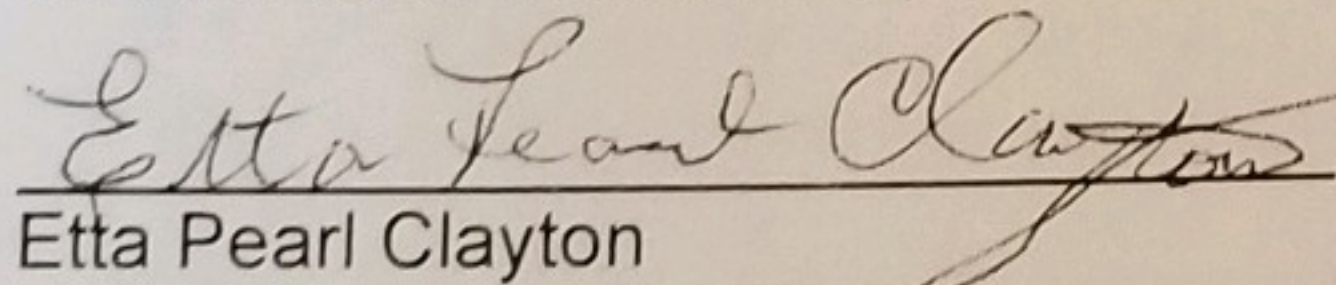 Etta Pearl Clayton
Etta Pearl Clayton